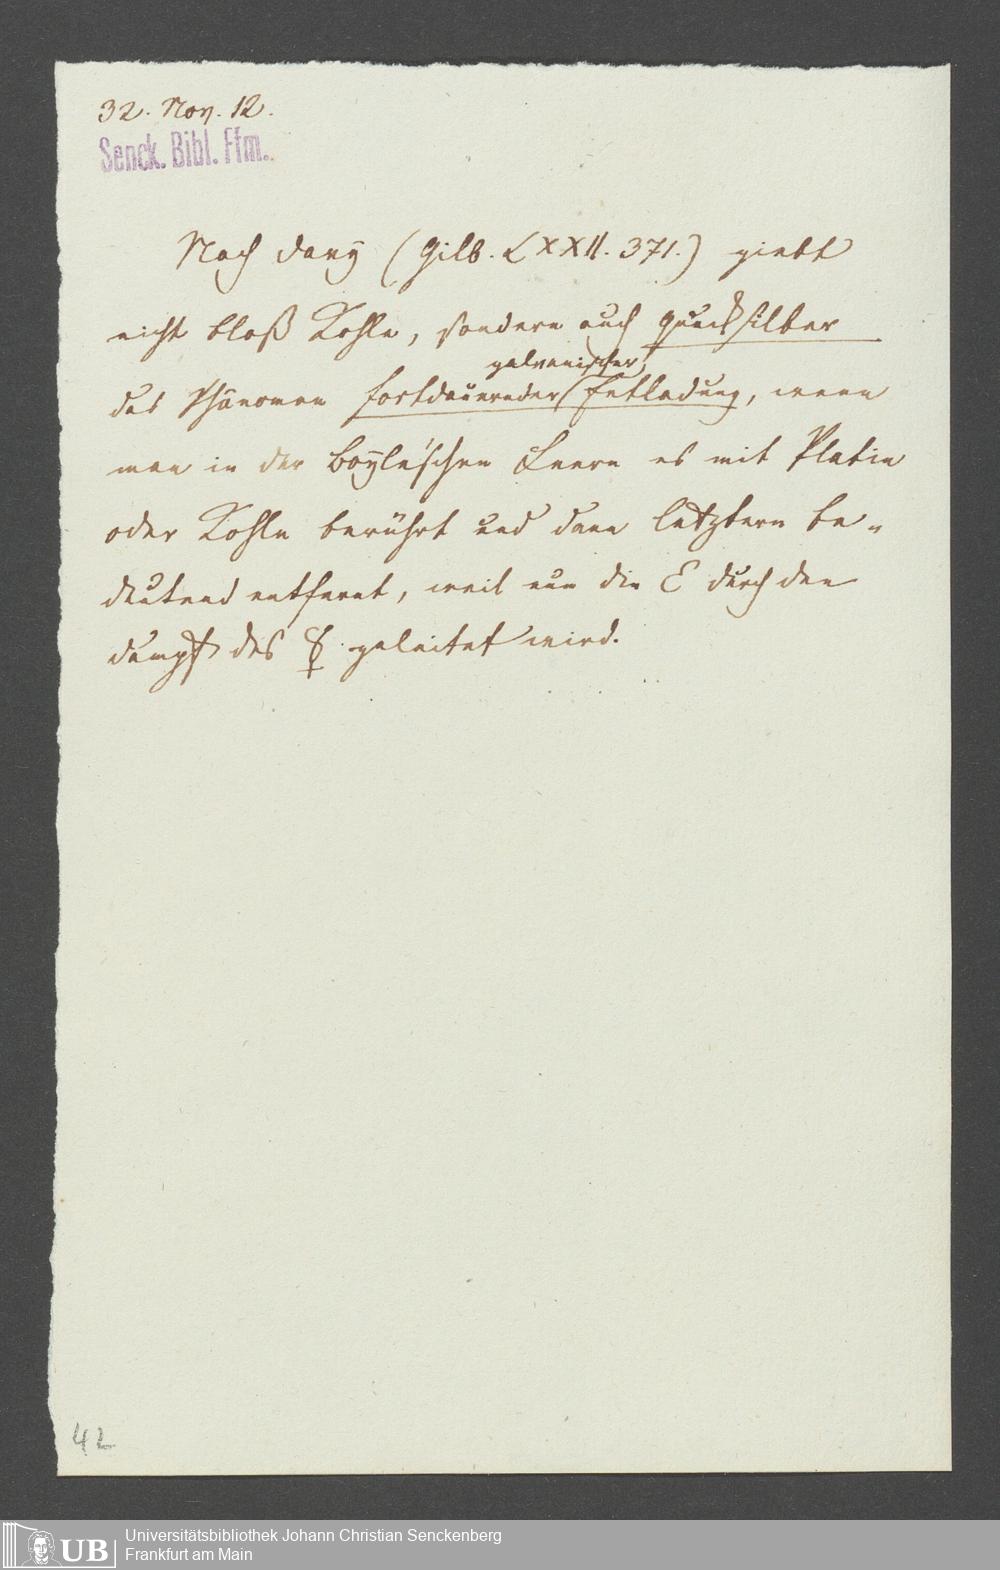 32. Nov. 12.
Senck. Bibl. Ffm.
Nach Davy (Gilb. LXXII. 371.) giebt
nicht bloß Kohle, sondern auch Quecksilber
das Phänomen fortdauernder galvanischer Entladung, wenn
man in der Boyle'schen Leere es mit Platin
oder Kohle berührt und dann letztern be-
deutend entfernt, weil nun die E durch den
Dampf des ☿ geleitet wird.
42
UB Universitätsbibliothek Johann Christian Senckenberg
Frankfurt am Main